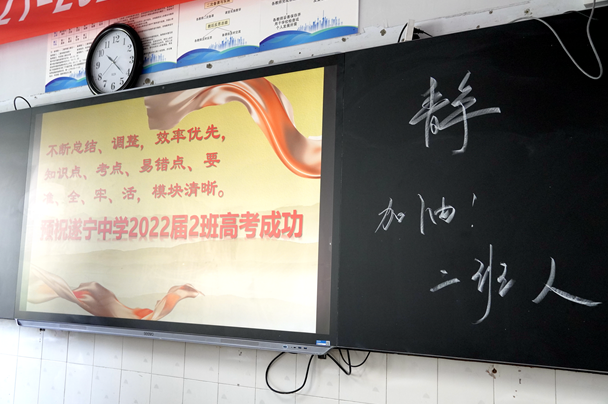 不断总结、调整，效率优先，
知识点、考点、易错点、要
准、全、牢、活，模块清晰。
预祝遂宁中学2022届2班高考成功
静
加油！
二班人